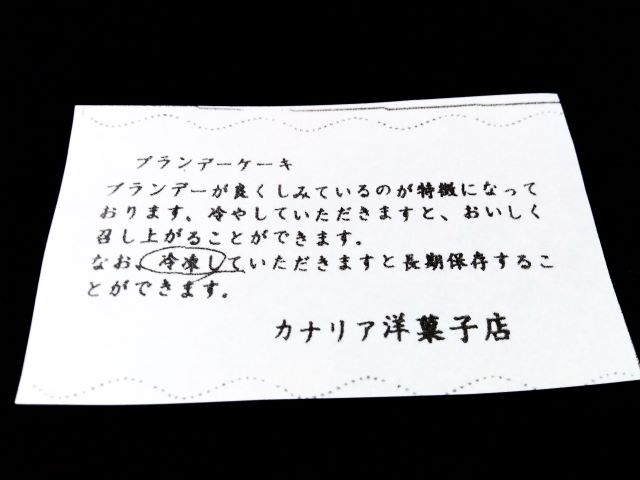 ブランデーケーキ
ブランデーが良くしみているのが特徴になって
おります、冷やしていただきますと、おいしく
召し上がることができます。
なお、冷凍していただきますと長期保存するこ
とができます。
カナリア洋菓子店